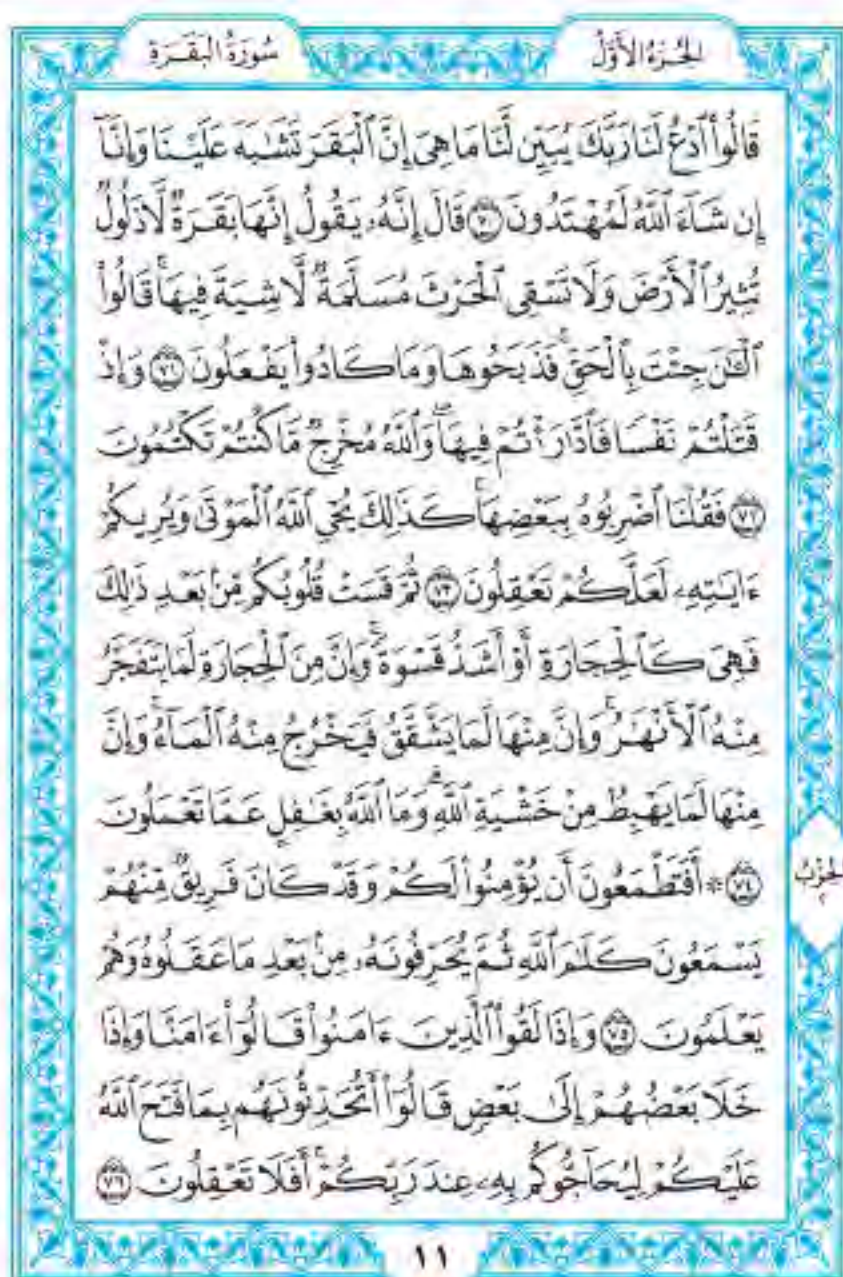 سُورَةُ البَقَـرَةِ
الجُـزءُ الأَوَّلُ
قَالُواْ ٱدۡعُ لَنَا رَبَّكَ يُبَيِّن لَّنَا مَا هِيَ إِنَّ ٱلۡبَقَرَ تَشَٰبَهَ عَلَيۡنَا وَإِنَّآ
إِن شَآءَ ٱللَّهُ لَمُهۡتَدُونَ ٧٠ قَالَ إِنَّهُۥ يَقُولُ إِنَّهَا بَقَرَةٞ لَّا ذَلُولٞ
تُثِيرُ ٱلۡأَرۡضَ وَلَا تَسۡقِي ٱلۡحَرۡثَ مُسَلَّمَةٞ لَّا شِيَةَ فِيهَاۚ قَالُواْ
ٱلۡـَٰٔنَ جِئۡتَ بِٱلۡحَقِّۚ فَذَبَحُوهَا وَمَا كَادُواْ يَفۡعَلُونَ ٧١ وَإِذۡ
قَتَلۡتُمۡ نَفۡسٗا فَٱدَّٰرَٰٔتُمۡ فِيهَاۖ وَٱللَّهُ مُخۡرِجٞ مَّا كُنتُمۡ تَكۡتُمُونَ
٧٢ فَقُلۡنَا ٱضۡرِبُوهُ بِبَعۡضِهَاۚ كَذَٰلِكَ يُحۡيِ ٱللَّهُ ٱلۡمَوۡتَىٰ وَيُرِيكُمۡ
ءَايَٰتِهِۦ لَعَلَّكُمۡ تَعۡقِلُونَ ٧٣ ثُمَّ قَسَتۡ قُلُوبُكُم مِّنۢ بَعۡدِ ذَٰلِكَ
فَهِيَ كَٱلۡحِجَارَةِ أَوۡ أَشَدُّ قَسۡوَةٗۚ وَإِنَّ مِنَ ٱلۡحِجَارَةِ لَمَا يَتَفَجَّرُ
مِنۡهُ ٱلۡأَنۡهَٰرُۚ وَإِنَّ مِنۡهَا لَمَا يَشَّقَّقُ فَيَخۡرُجُ مِنۡهُ ٱلۡمَآءُۚ وَإِنَّ
مِنۡهَا لَمَا يَهۡبِطُ مِنۡ خَشۡيَةِ ٱللَّهِۗ وَمَا ٱللَّهُ بِغَٰفِلٍ عَمَّا تَعۡمَلُونَ
٧٤ ۞ أَفَتَطۡمَعُونَ أَن يُؤۡمِنُواْ لَكُمۡ وَقَدۡ كَانَ فَرِيقٞ مِّنۡهُمۡ
الحِزْبُ
٢
يَسۡمَعُونَ كَلَٰمَ ٱللَّهِ ثُمَّ يُحَرِّفُونَهُۥ مِنۢ بَعۡدِ مَا عَقَلُوهُ وَهُمۡ
يَعۡلَمُونَ ٧٥ وَإِذَا لَقُواْ ٱلَّذِينَ ءَامَنُواْ قَالُوٓاْ ءَامَنَّا وَإِذَا
خَلَا بَعۡضُهُمۡ إِلَىٰ بَعۡضٖ قَالُوٓاْ أَتُحَدِّثُونَهُم بِمَا فَتَحَ ٱللَّهُ
عَلَيۡكُمۡ لِيُحَآجُّوكُم بِهِۦ عِندَ رَبِّكُمۡۚ أَفَلَا تَعۡقِلُونَ ٧٦
١١